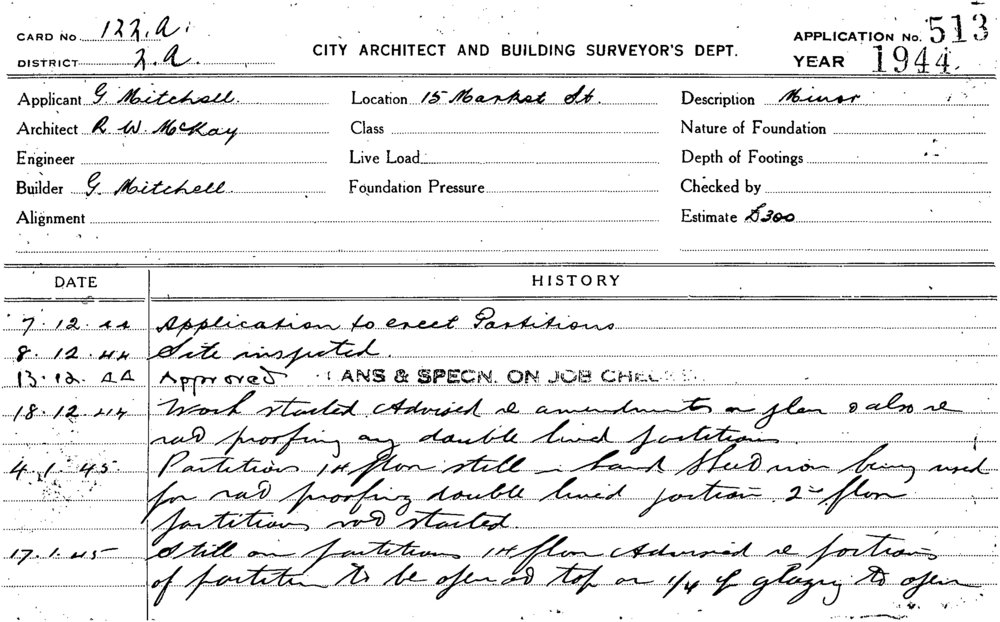 CARD No 122.A.
DISTRICT 2.A.
CITY ARCHITECT AND BUILDING SURVEYOR'S DEPT.
APPLICATION No. 513
YEAR 1944.
Applicant G Mitchell. Location 15 Market St. Description Minor
Architect R W. McKay Class Nature of Foundation
Engineer Live Load Depth of Footings
Builder G. Mitchell. Foundation Pressure Checked by
Alignment Estimate £300
DATE HISTORY
7.12.44 Application to erect Partitions
8.12.44 Site inspected.
13.12.44 Approved ANS & SPECN. ON JOB CHECKE
18.12.44 Work started Advised re amendments on plan & also re
rat proofing any double lined partitions.
4.1.45 Partitions 1st floor still in hand Steel now being used
for rat proofing double lined portion. 2nd floor
partitions not started.
17.1.45 Still on partitions 1st floor Advised re portions
of partition to be open at top or 1/4 of glazing to open